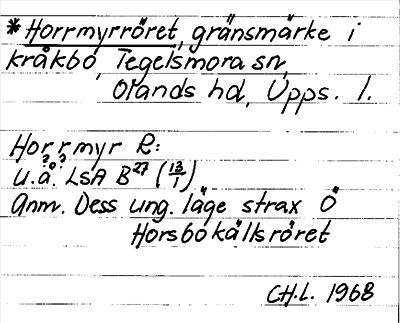 *Horrmyrröret, gränsmärke i
kråkbo, Tegelsmora sn,
Olands hd, Upps. l.
Horrmyr R:
u.å. LSA B27 (13/1)
Anm. Dess ung. läge strax Ö
Horsbokällsröret
CH.L. 1968